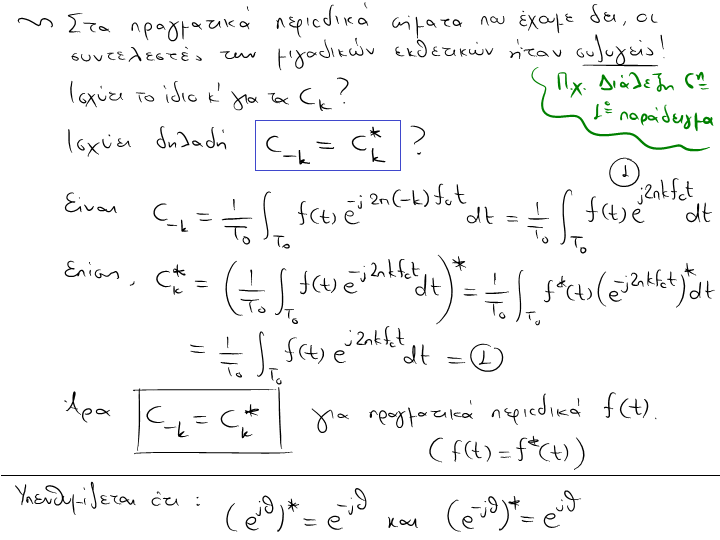 Στα πραγματικά περιοδικά σήματα που έχουμε δει, οι
συντελεστές των μιγαδικών εκθετικών ήταν συζυγείς!
Ισχύει το ίδιο κ' για τα C_k?
Π.χ. Διάλεξη 6η
1ο παράδειγμα
Ισχύει δηλαδή C_{-k} = C_k^* ?
Είναι C_{-k} = \frac{1}{T_0} \int_{T_0} f(t) e^{-j2π(-k)f_0t} dt = \frac{1}{T_0} \int_{T_0} f(t) e^{j2πkf_0t} dt ①
Επίσης, C_k^* = \left( \frac{1}{T_0} \int_{T_0} f(t) e^{-j2πkf_0t} dt \right)^* = \frac{1}{T_0} \int_{T_0} f^*(t) (e^{-j2πkf_0t})^* dt
= \frac{1}{T_0} \int_{T_0} f(t) e^{j2πkf_0t} dt = ①
Άρα C_{-k} = C_k^* για πραγματικά περιοδικά f(t).
(f(t) = f^*(t))
Υπενθυμίζεται ότι : (e^{jθ})^* = e^{-jθ} και (e^{-jθ})^* = e^{jθ}